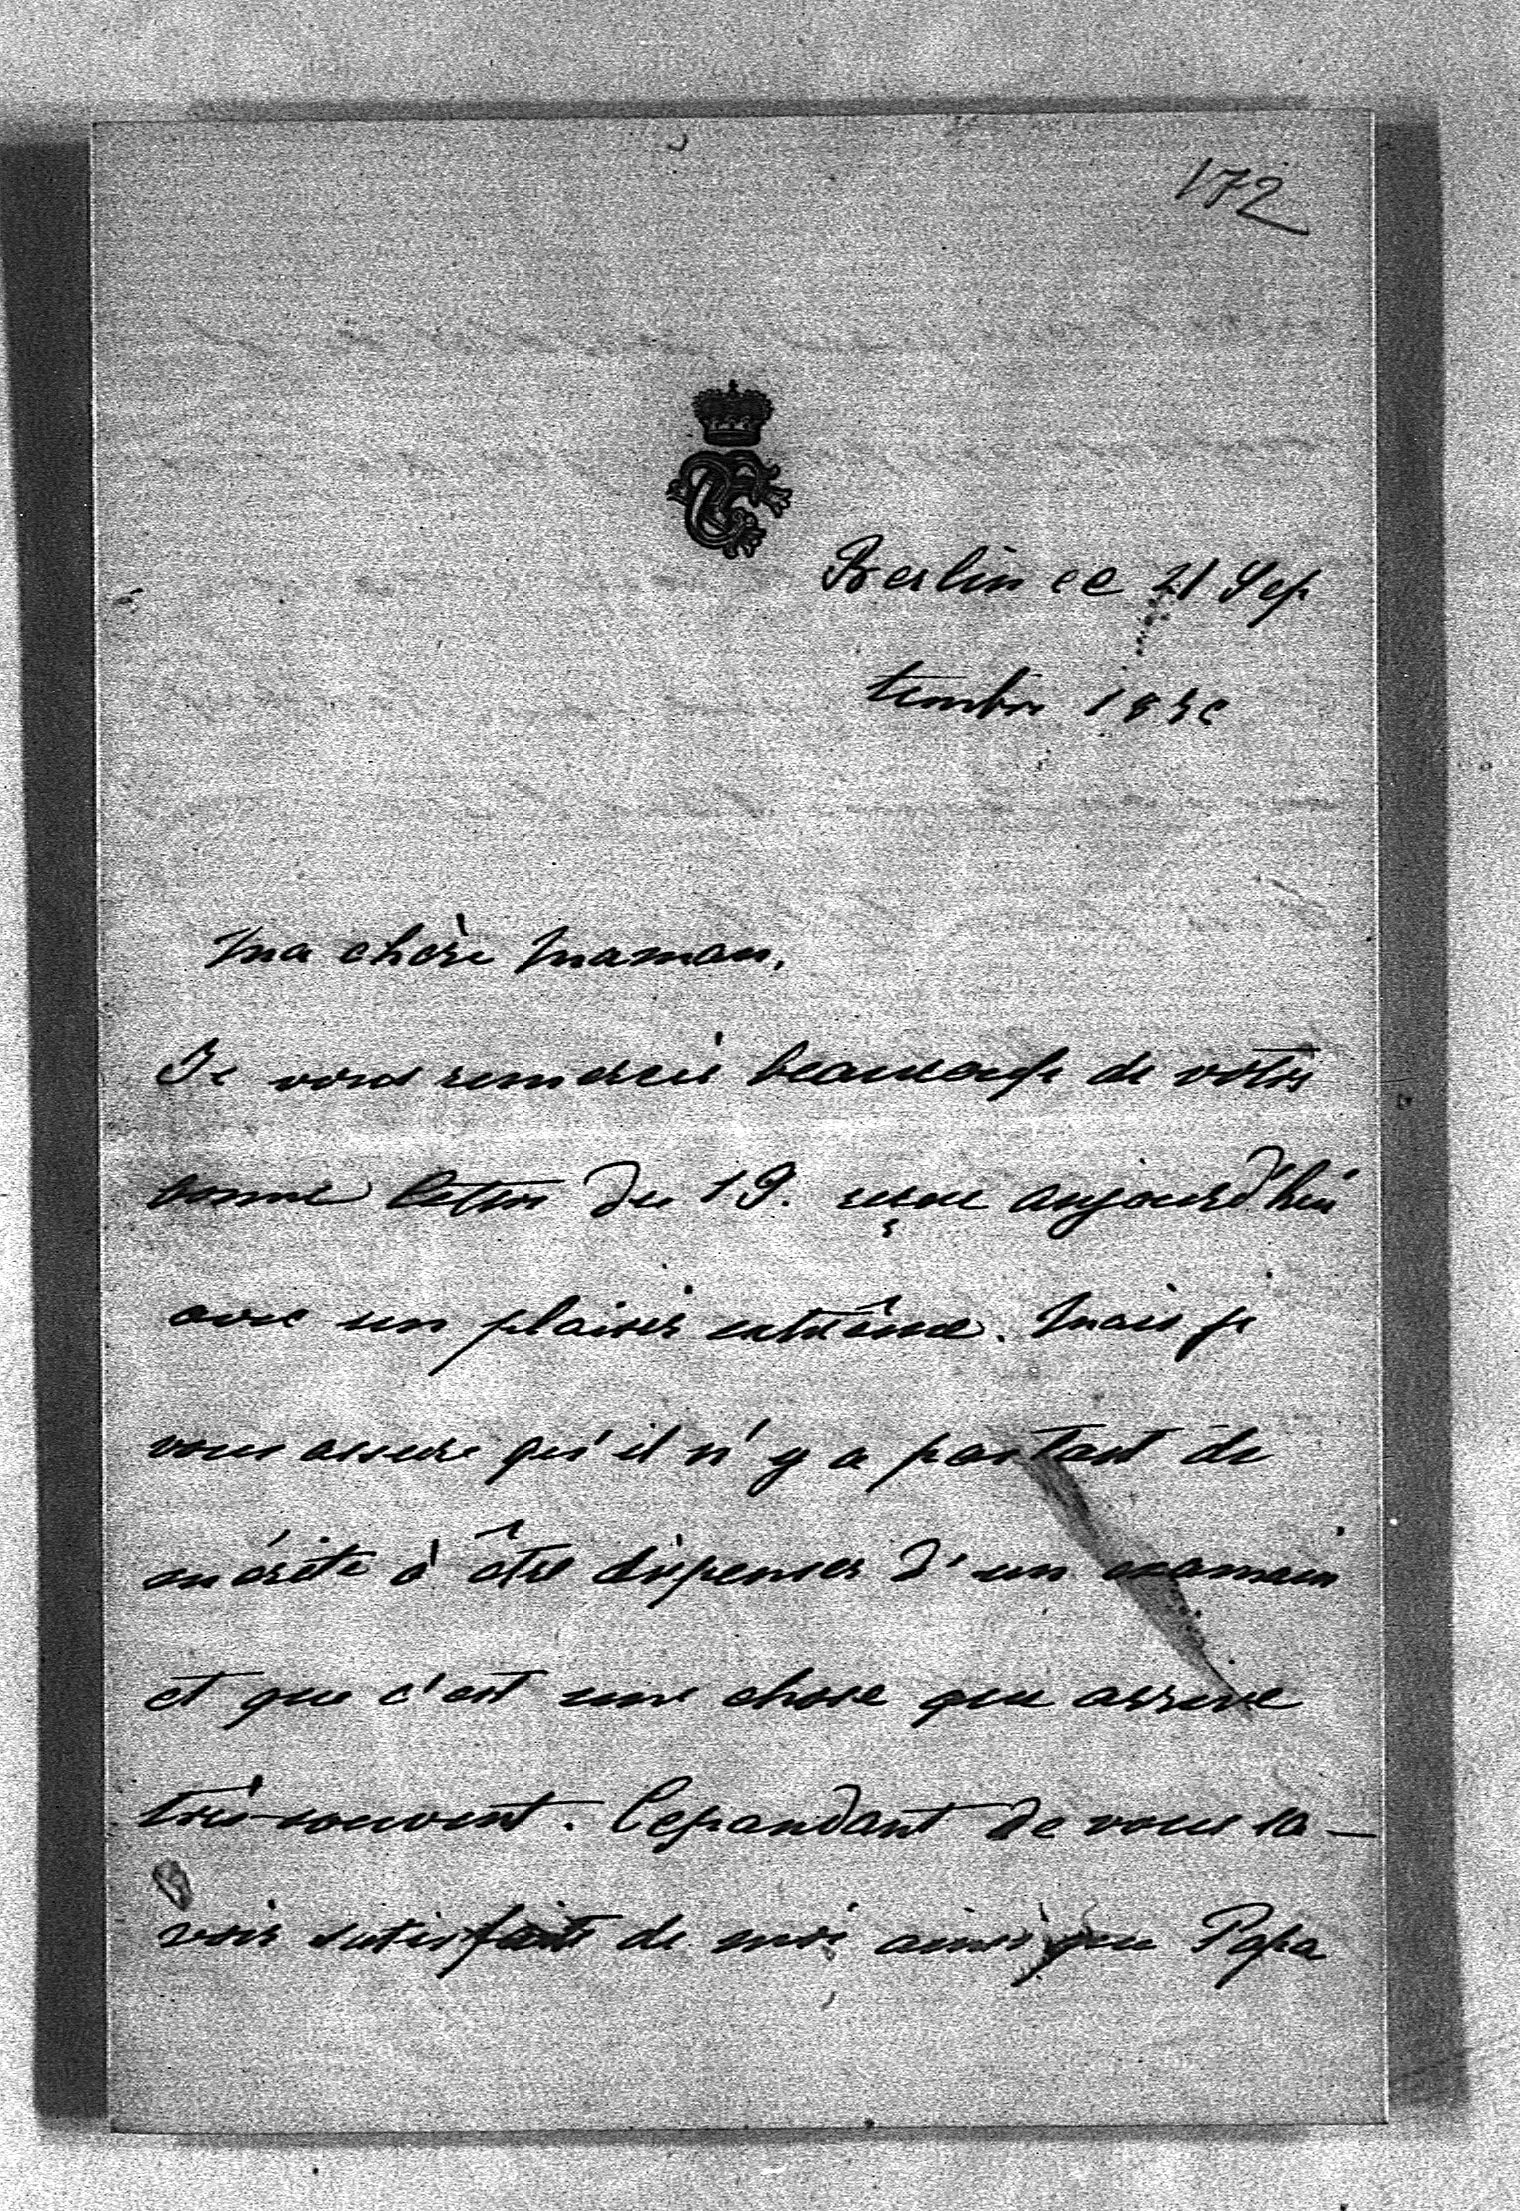 172
Berlin ce 21 Sep
tembre
Ma chère Maman,
Je vous remercie beaucoup de votre
bonne lettre du 19. reçue aujourd'hui
avec un plaisir extrême. Mais je
vous assure qu'il n'y a pas tant de
mérite à être dispenser d'un examain
et que c'est une chose que arrive
très-souvent. Cepandant de vous sa-
voir satisfaits de moi ainsi que Papa